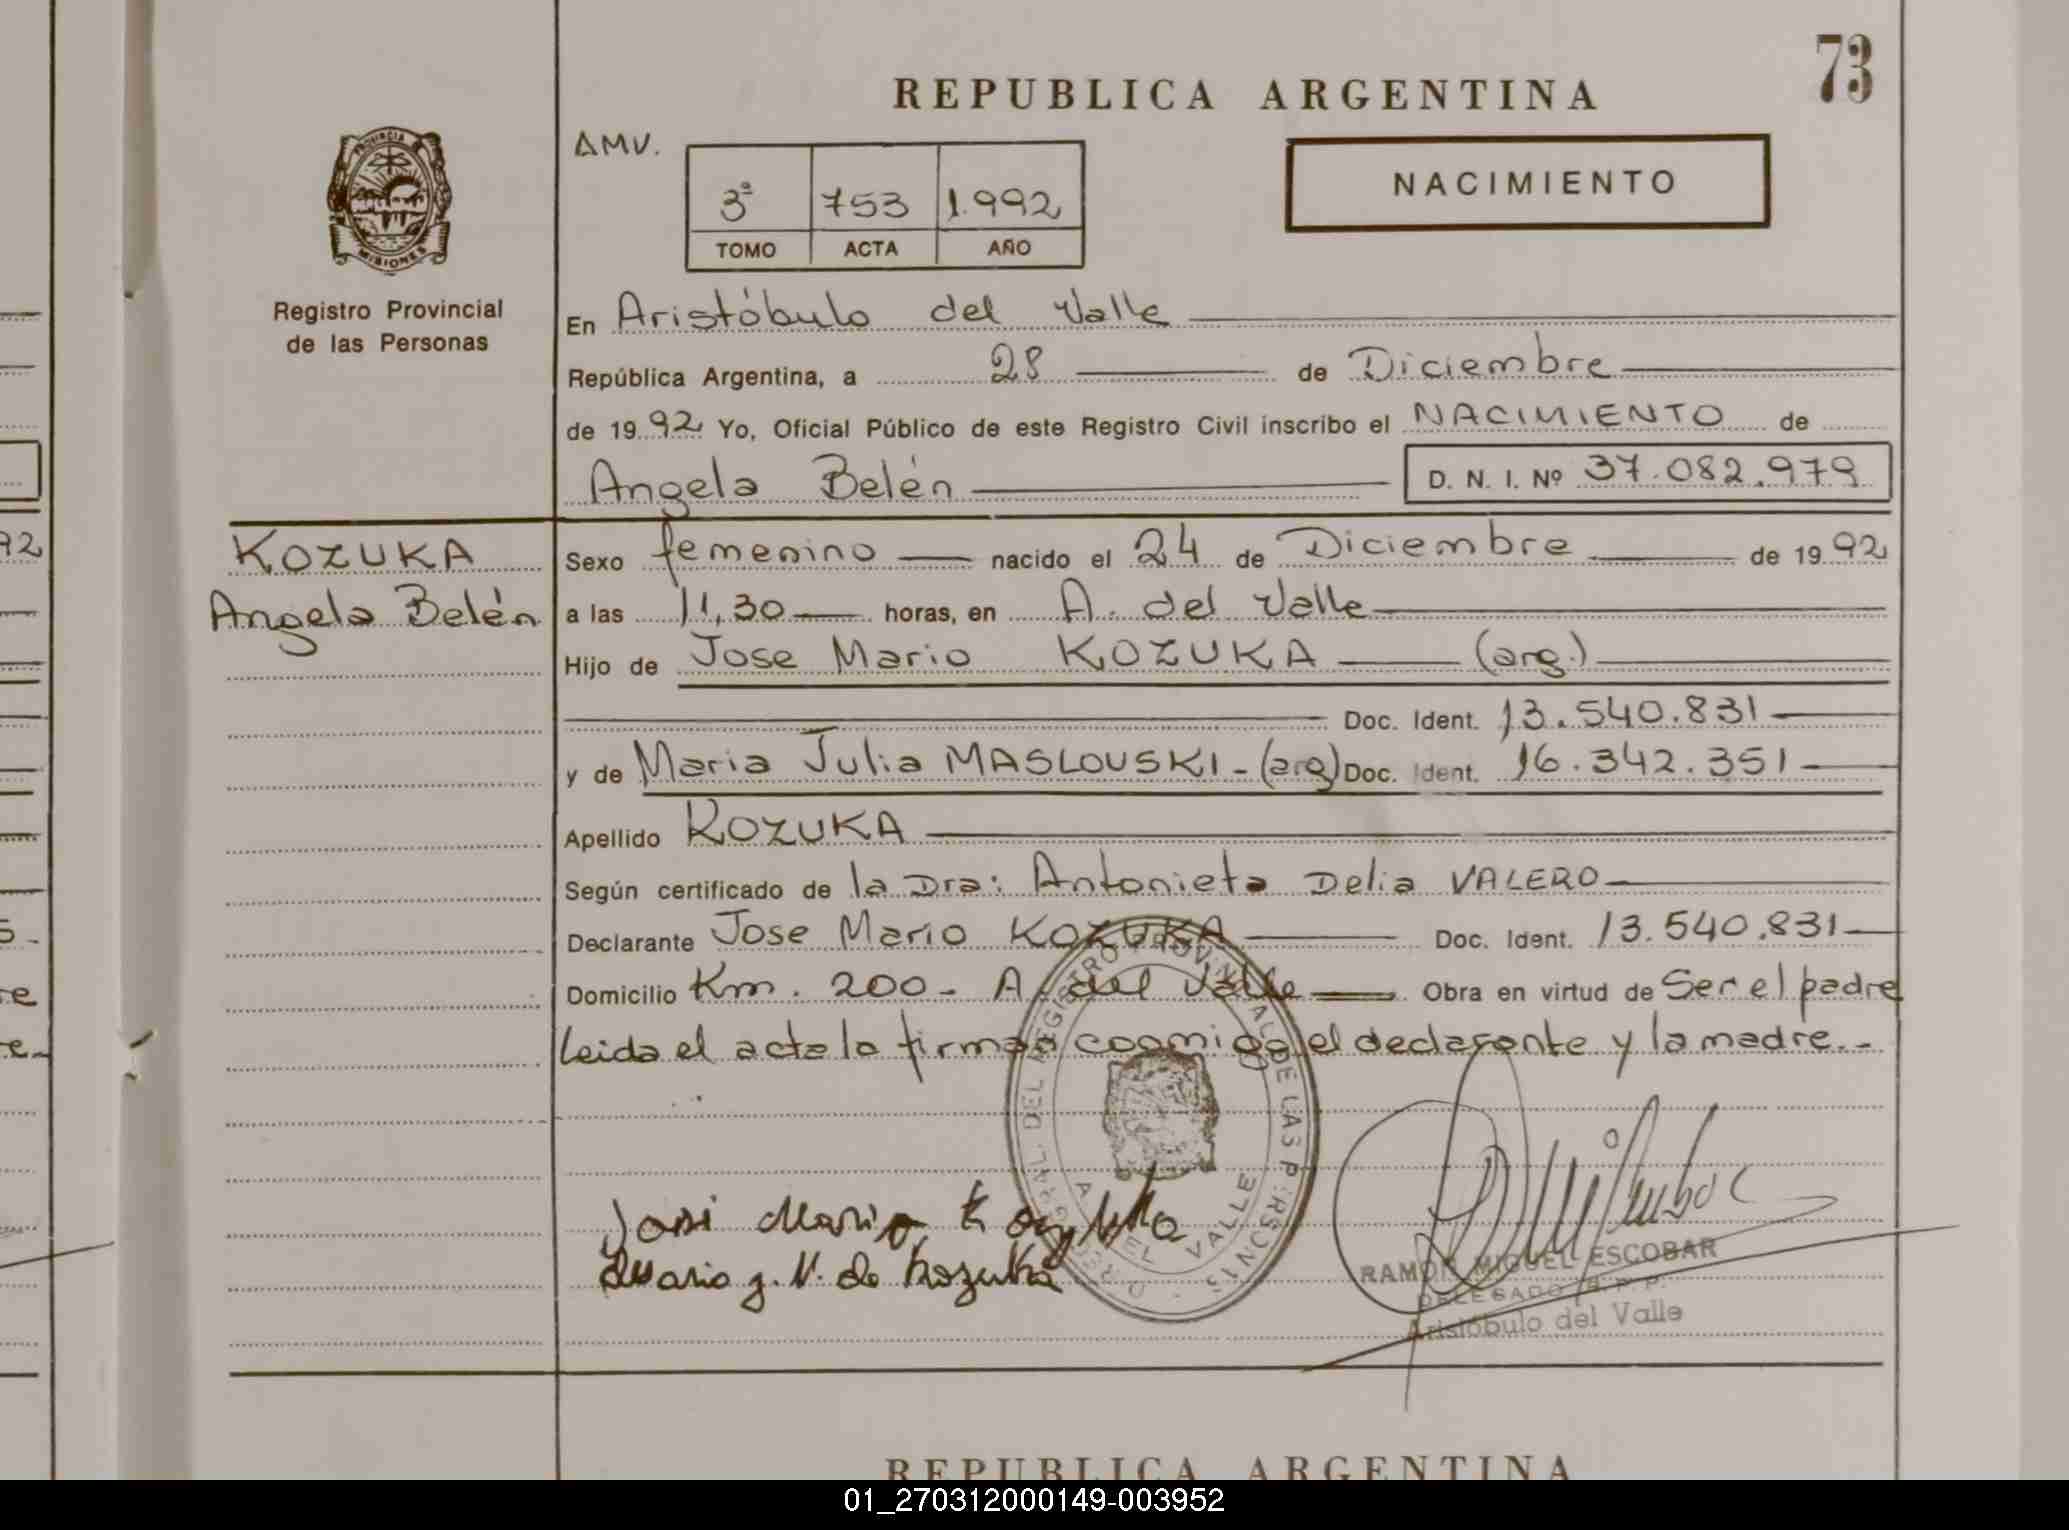 73
REPUBLICA ARGENTINA
AMV.
3ª 753 1.992
TOMO ACTA AÑO
NACIMIENTO
PROVINCIA
MISIONES
Registro Provincial
de las Personas
En Aristóbulo del Valle
República Argentina, a 28 de Diciembre
de 1992 Yo, Oficial Público de este Registro Civil inscribo el NACIMIENTO de
Angela Belén D. N. I. Nº 37.082.979
KOZUKA
Angela Belén
Sexo femenino nacido el 24 de Diciembre de 1992
a las 11,30 horas, en A. del Valle
Hijo de Jose Mario KOZUKA (arg.)
Doc. Ident. 13.540.831
y de Maria Julia MASLOUSKI - (arg) Doc. Ident. 16.342.351
Apellido KOZUKA
Según certificado de la Dra: Antonieta Delia VALERO
Declarante Jose Mario KOZUKA Doc. Ident. 13.540.831
Domicilio Km. 200 - A. del Valle Obra en virtud de Ser el padre
Leida el acta la firman conmigo el declarante y la madre.-
DEL REGISTRO PROVINCIAL DE LAS PERSONAS
DEL VALLE
RAMON MIGUEL ESCOBAR
DELEGADO R. P. P.
Aristóbulo del Valle
REPUBLICA ARGENTINA
92
re
01_270312000149-003952